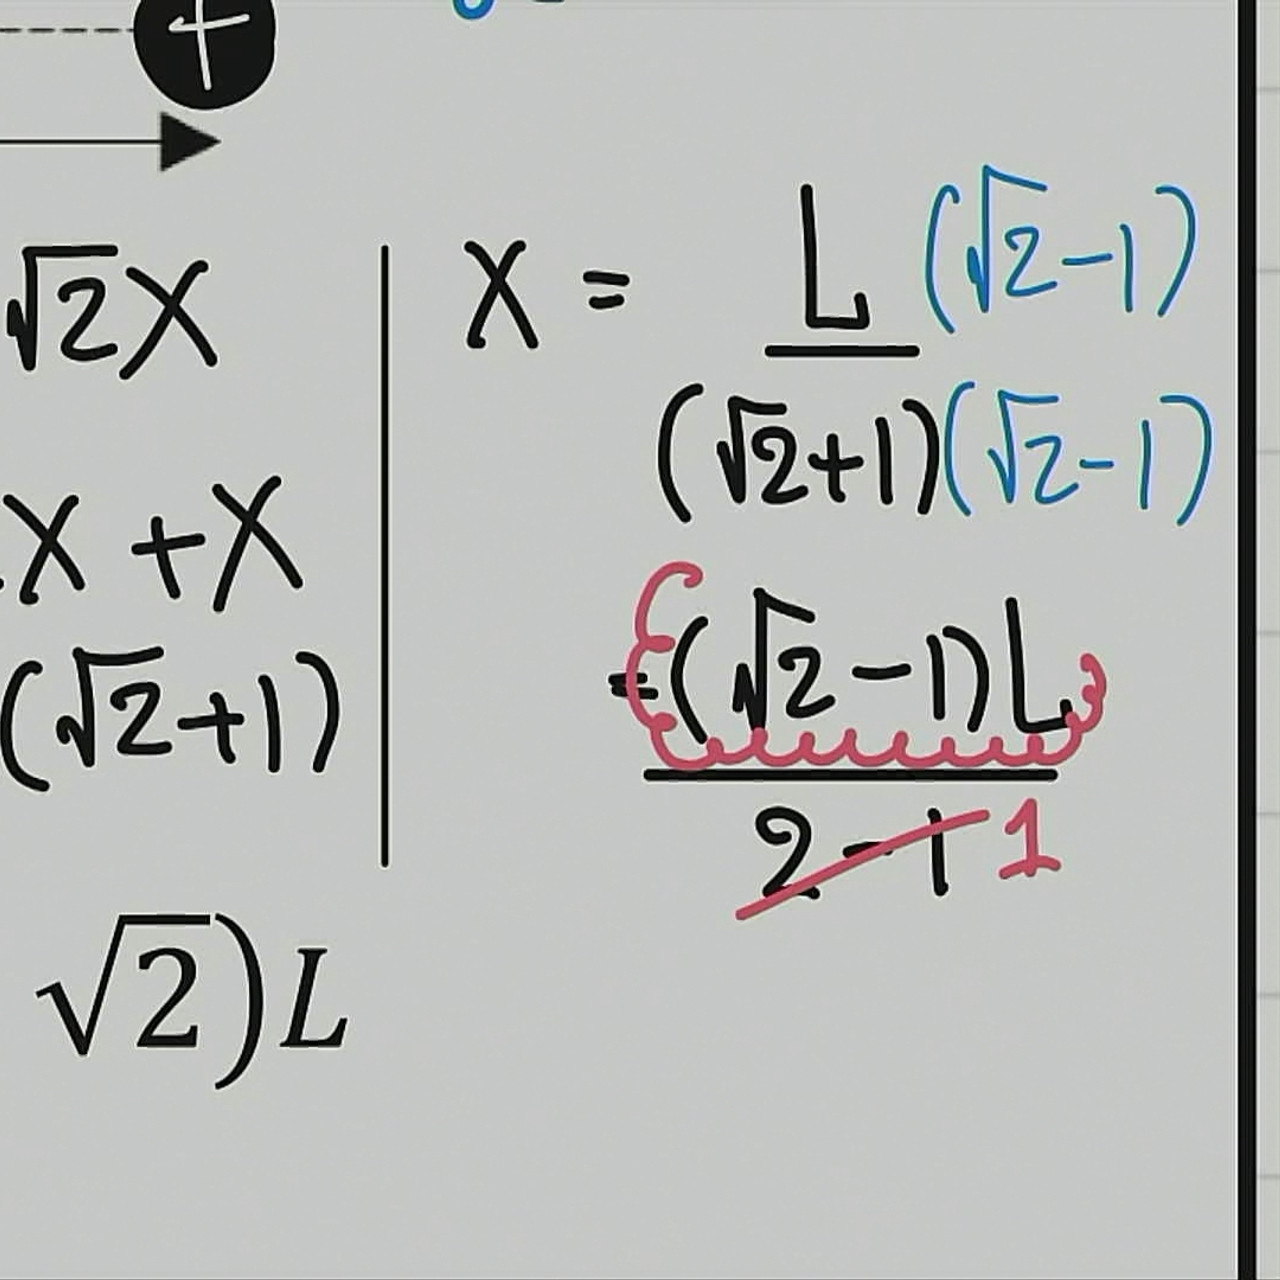 +
√2X
X + X
(√2+1)
√2)L
X = L (√2-1)
(√2+1)(√2-1)
=(√2-1)L
2-1 1